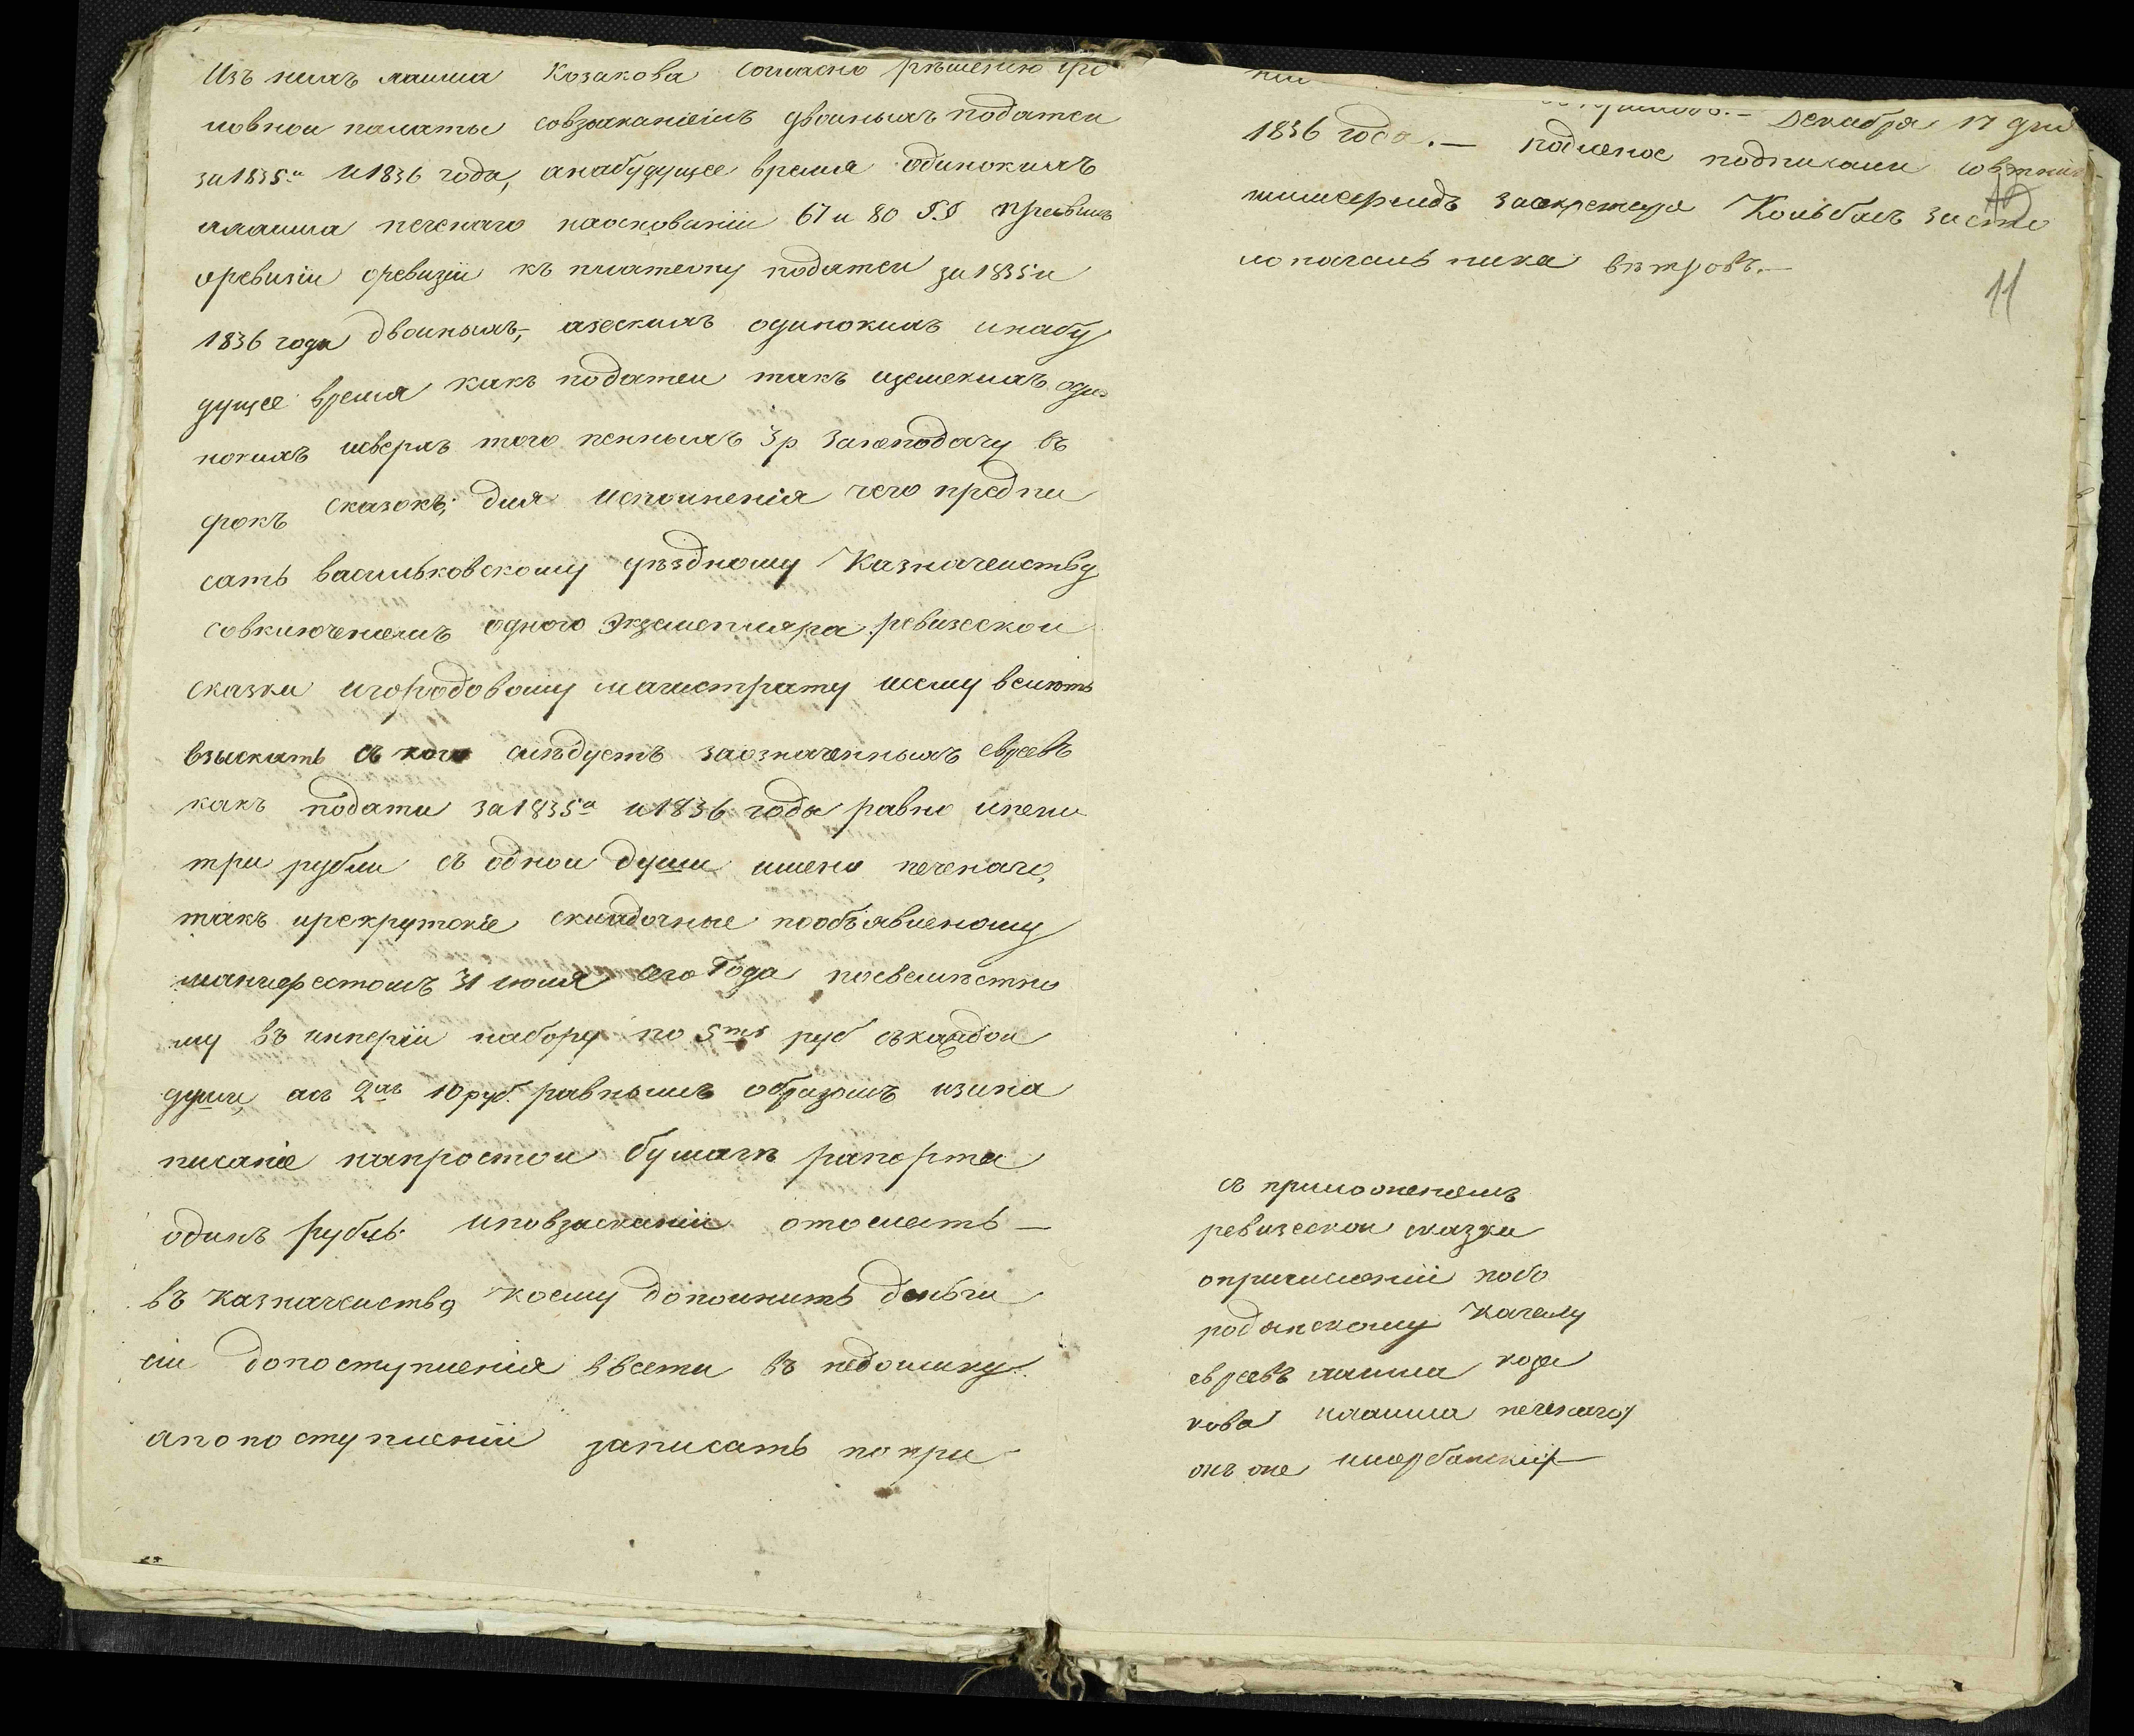 Изъ нихъ лашма Козакова согласно рѣшению уго
ловнои палаты совзысканіемъ двоиныхъ податеи
за 1835й и 1836 года, анабудущее время одинокихъ
илашма печенаго наосновании 67 и 80 §.§ правилъ
оревизіи оревизіи къ платежу податеи за 1835 и
1836 года двоиныхъ, аземскихъ одинокихъ инабу
дущее время какъ податеи такъ иземскихъ оди-
нокихъ исверхъ того пенныхъ 3 р занеподачу въ
срокъ сказокъ; для исполненія чего предпи
сать васильковскому уѣздному Казначеиству
совключенемъ одного Экземпляра ревизскои
сказки игородовому магистрату исему велѣть
взыскать съ кого слѣдуетъ заозначенныхъ евреевъ
какъ подати за 1835й и 1836 годы равно ипени
три рубли съ однои души имено печенаго,
такъ ирекрутскіе складочные пообъявленому
манифестомъ 31 июля сего Года повсемѣстно
му въ имперіи набору по 5ть руб скаждои
души, асъ 2хъ 10 руб. равнымъ образомъ изына
писаніе напростои бумагѣ рапорта
одинъ рубль иповзысканіи отослать —
въ казначеиство, коему дополнить деньги
сіи допоступленія ввсети въ недоимку.
апопоступленіи записать попри
Декабря 17 дня
1836 года. — Подленое подписали совѣтникъ
засекретаря за сто
лоначальника вѣтровъ. —
10
11
съ приложенемъ
ревизскои сказки
опричисленіи кобо
родянскому кагалу
евреевъ лашма коза
кова илашма печенаго
онъ же щербанскій —